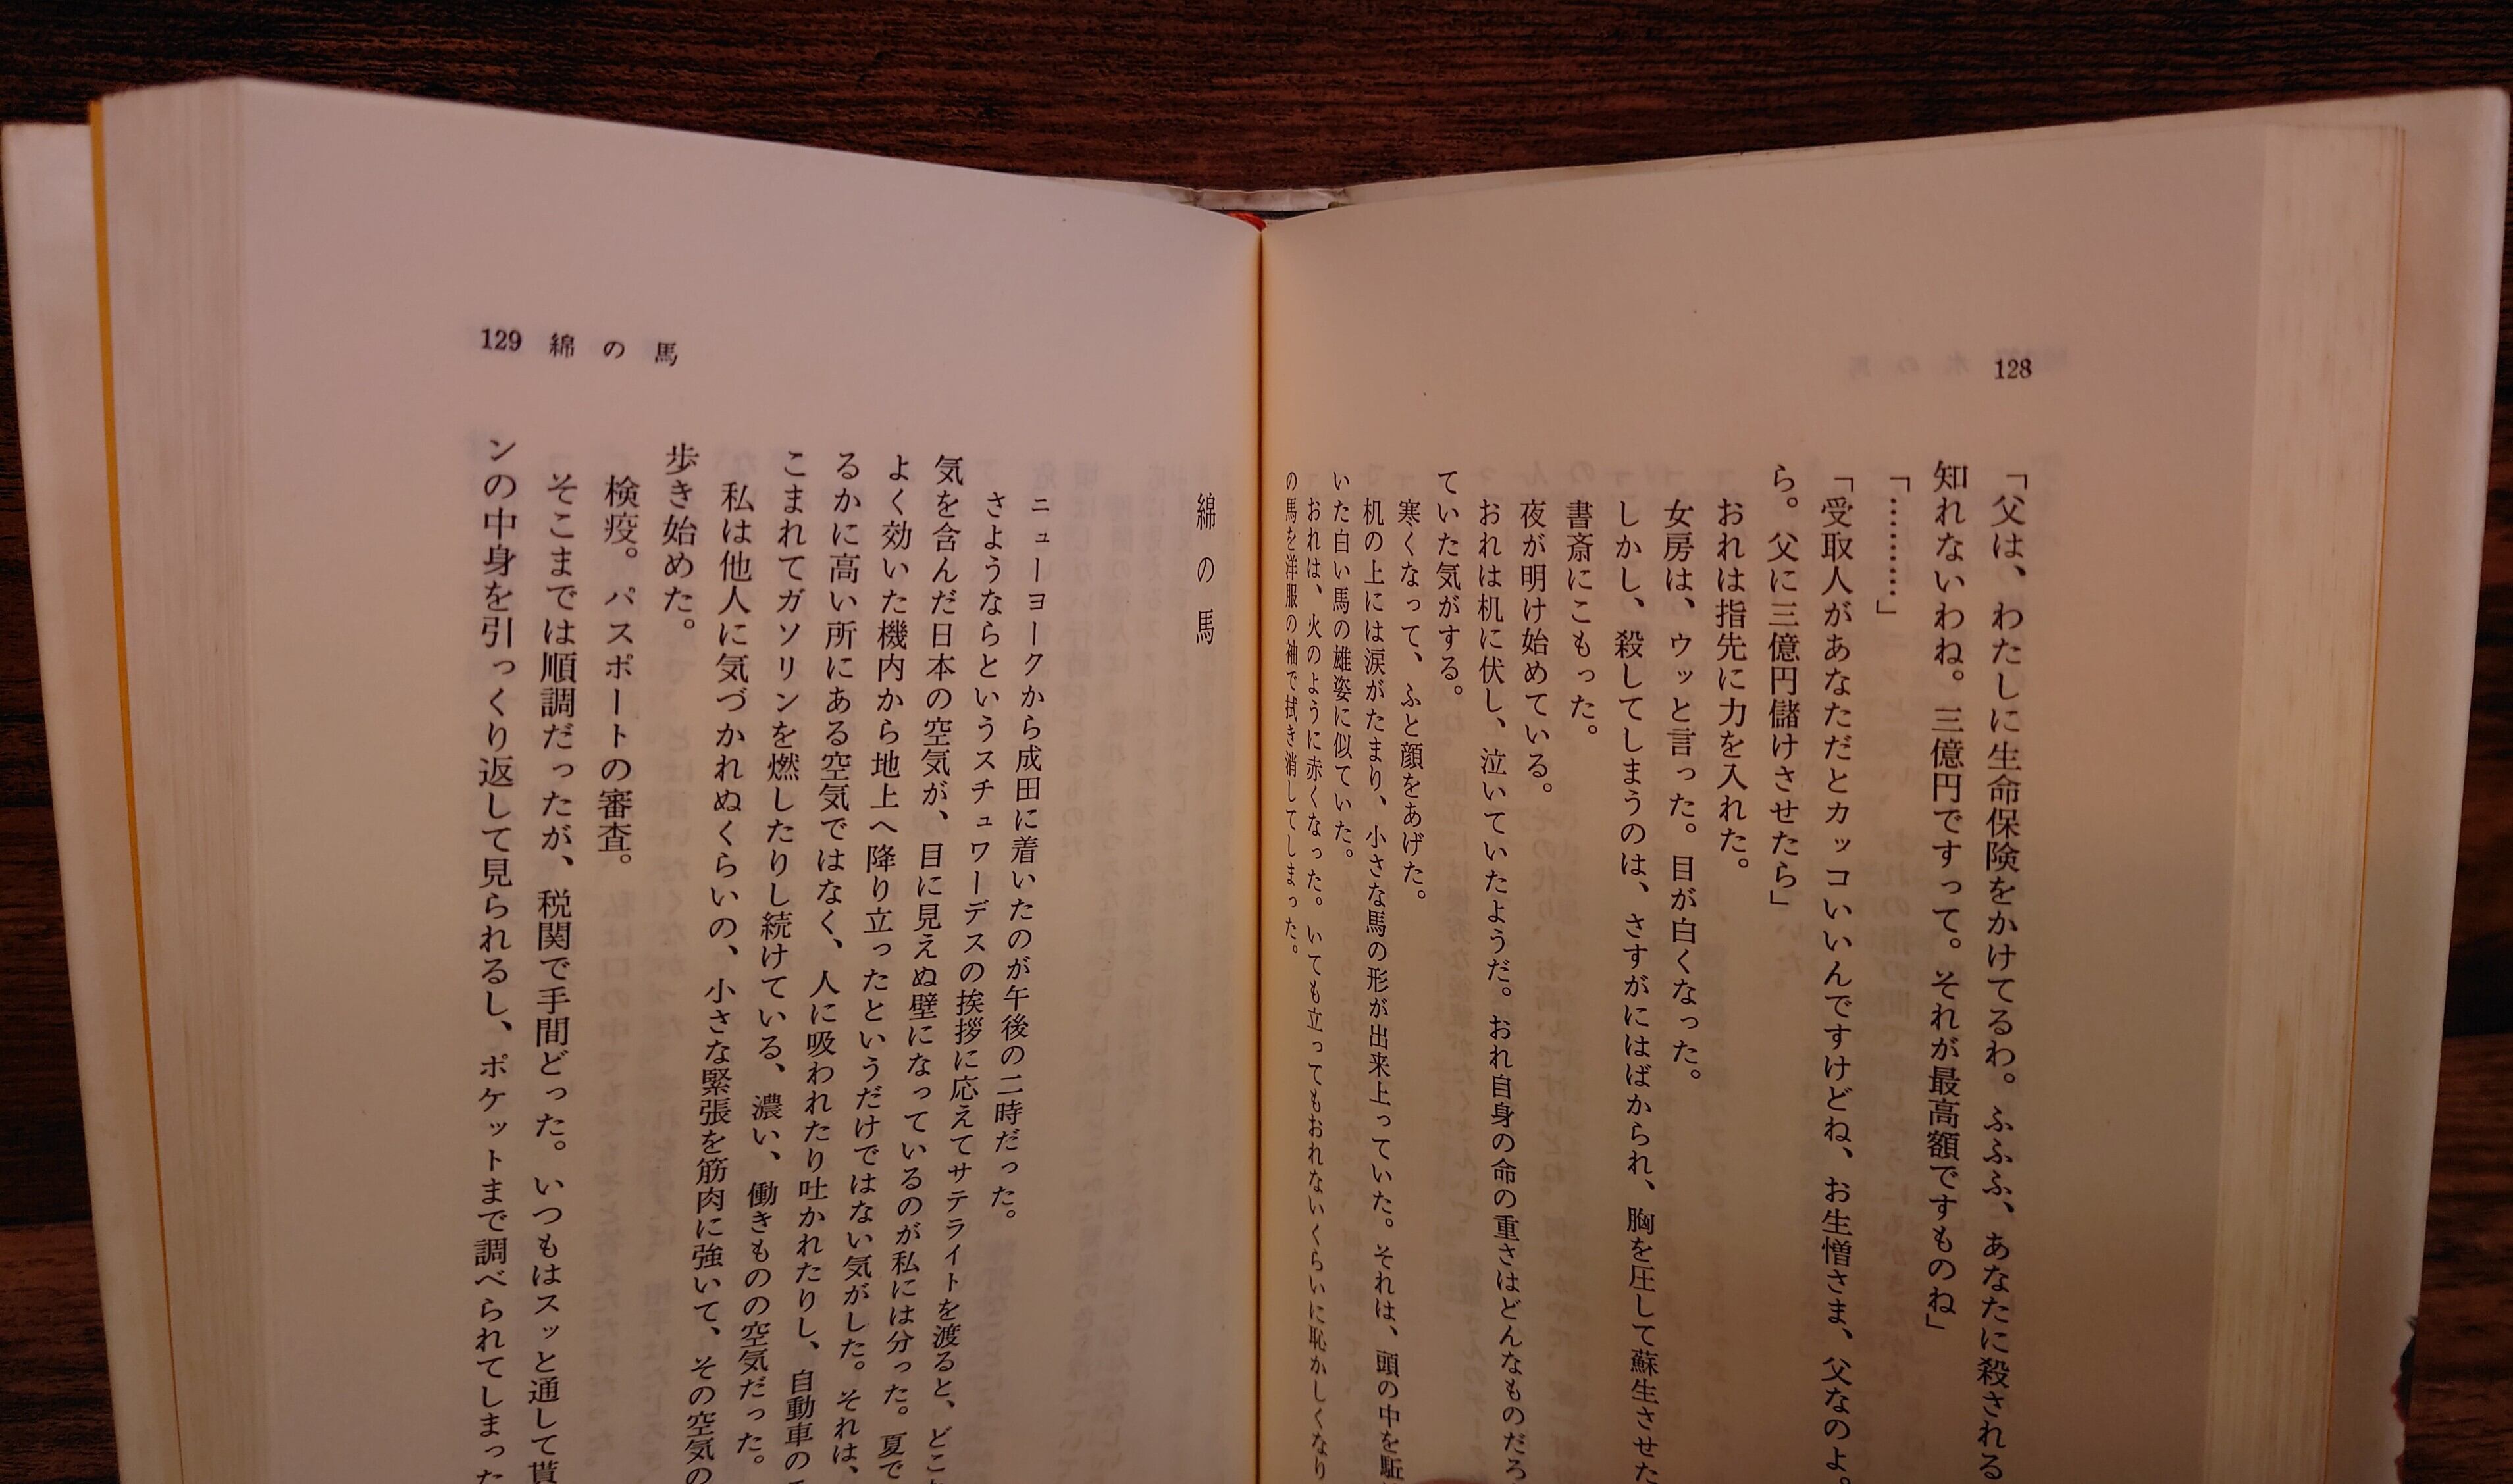 128
「父は、わたしに生命保険をかけてるわ。ふふふ、あなたに殺される
知れないわね。三億円ですって。それが最高額ですものね」
「………」
「受取人があなただとカッコいいんですけどね、お生憎さま、父なのよ。
ら。父に三億円儲けさせたら」
おれは指先に力を入れた。
女房は、ウッと言った。目が白くなった。
しかし、殺してしまうのは、さすがにはばかられ、胸を圧して蘇生させた
書斎にこもった。
夜が明け始めている。
おれは机に伏し、泣いていたようだ。おれ自身の命の重さはどんなものだろ
ていた気がする。
寒くなって、ふと顔をあげた。
机の上には涙がたまり、小さな馬の形が出来上っていた。それは、頭の中を駈
いた白い馬の雄姿に似ていた。
おれは、火のように赤くなった。いても立ってもおれないくらいに恥かしくなり
の馬を洋服の袖で拭き消してしまった。
129 綿の馬
綿の馬
ニューヨークから成田に着いたのが午後の二時だった。
さようならというスチュワーデスの挨拶に応えてサテライトを渡ると、どこ
気を含んだ日本の空気が、目に見えぬ壁になっているのが私には分った。夏で
よく効いた機内から地上へ降り立ったというだけではない気がした。それは、
るかに高い所にある空気ではなく、人に吸われたり吐かれたりし、自動車の
こまれてガソリンを燃したりし続けている、濃い、働きものの空気だった。
私は他人に気づかれぬくらいの、小さな緊張を筋肉に強いて、その空気の
歩き始めた。
検疫。パスポートの審査。
そこまでは順調だったが、税関で手間どった。いつもはスッと通して貰
ンの中身を引っくり返して見られるし、ポケットまで調べられてしまった